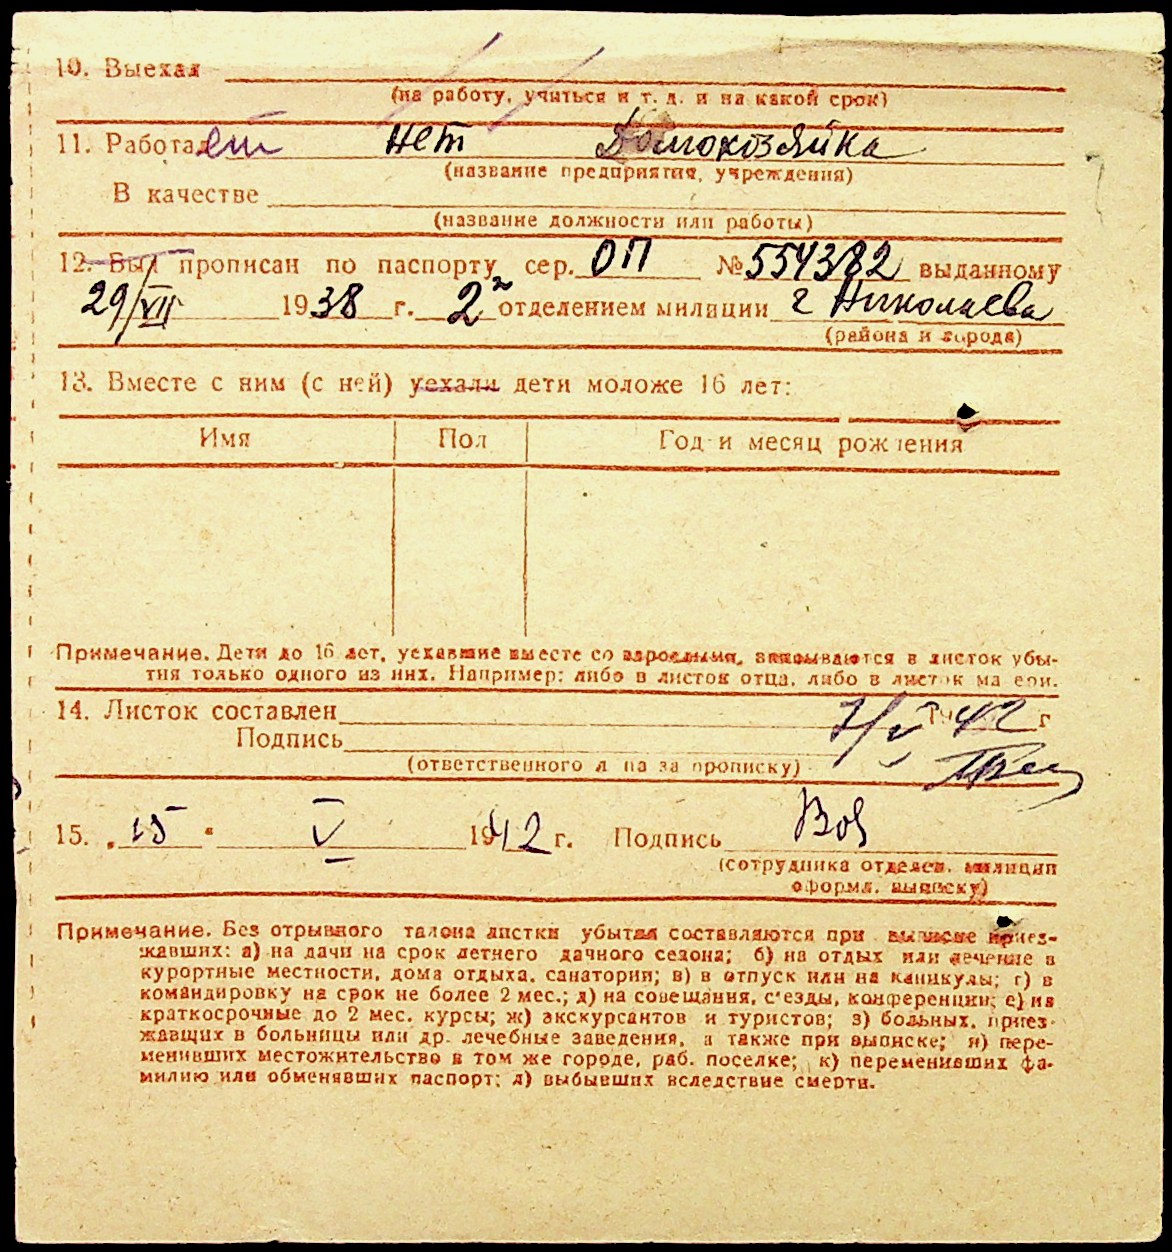 10. Выехал
(на работу, учиться и т. д. и на какой срок)
11. Работает нет Домохозяйка
(название предприятия, учреждения)
В качестве
(название должности или работы)
12. Был прописан по паспорту сер. ОП № 554382 выданному
29/VII 1938 г. 2м отделением милиции г Николаева
(района и города)
13. Вместе с ним (с ней) уехали дети моложе 16 лет:
Имя Пол Год и месяц рождения
Примечание. Дети до 16 лет, уехавшие вместе со взрослыми, вписываются в листок убы-
тия только одного из них. Например: либо в листок отца, либо в листок матери.
14. Листок составлен 7/V 1942 г
Подпись
(ответственного лица за прописку)
15. „15“ V 1942 г. Подпись
(сотрудника отделен. милиции
оформл. выписку)
Примечание. Без отрывного талона листки убытия составляются при выписке приез-
жавших: а) на дачи на срок летнего дачного сезона; б) на отдых или лечение в
курортные местности, дома отдыха, санатории; в) в отпуск или на каникулы; г) в
командировку на срок не более 2 мес.; д) на совещания, с'езды, конференции; е) на
краткосрочные до 2 мес. курсы; ж) экскурсантов и туристов; з) больных, приез-
жавших в больницы или др. лечебные заведения, а также при выписке; и) пере-
менивших местожительство в том же городе, раб. поселке; к) переменивших фа-
милию или обменявших паспорт; л) выбывших вследствие смерти.